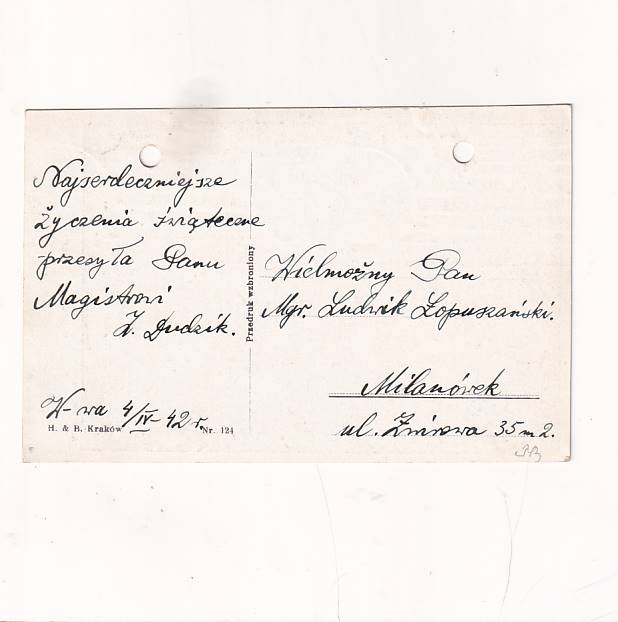 Najserdeczniejsze
życzenia świąteczne
przesyła Panu
Magistrowi
Z. Dudzik.
W-wa 4/IV-42 r.
H. & B. Kraków Nr. 124
Przedruk wzbroniony
Wielmożny Pan
Mgr. Ludwik Łopuszański.
Milanówek
ul. Żwirowa 35 m 2.